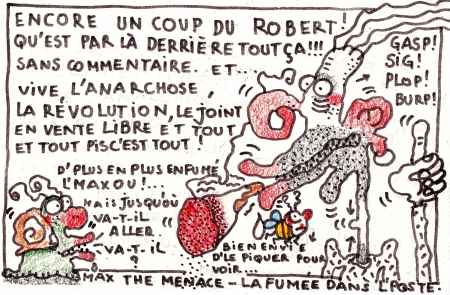 ENCORE UN COUP DU ROBERT!
QU'EST PAR LÀ DERRIÈRE TOUT ÇA!!!
SANS COMMENTAIRE. ET..
VIVE, L'ANARCHOSE,
LA RÉVOLUTION, LE JOINT
EN VENTE LIBRE ET TOUT
ET TOUT PISC'EST TOUT!
GASP!
SIG!
PLOP!
BURP!
D'PLUS EN PLUS ENFUMÉ
L'MAXOU!...
MAIS JUSQU'OÙ
VA-T-IL
ALLER
VA-T-IL
?
BIEN ENVIE
D'LE PIQUER POUR
VOIR...
MAX THE MENACE - LA FUMEE DANS L'POSTE.